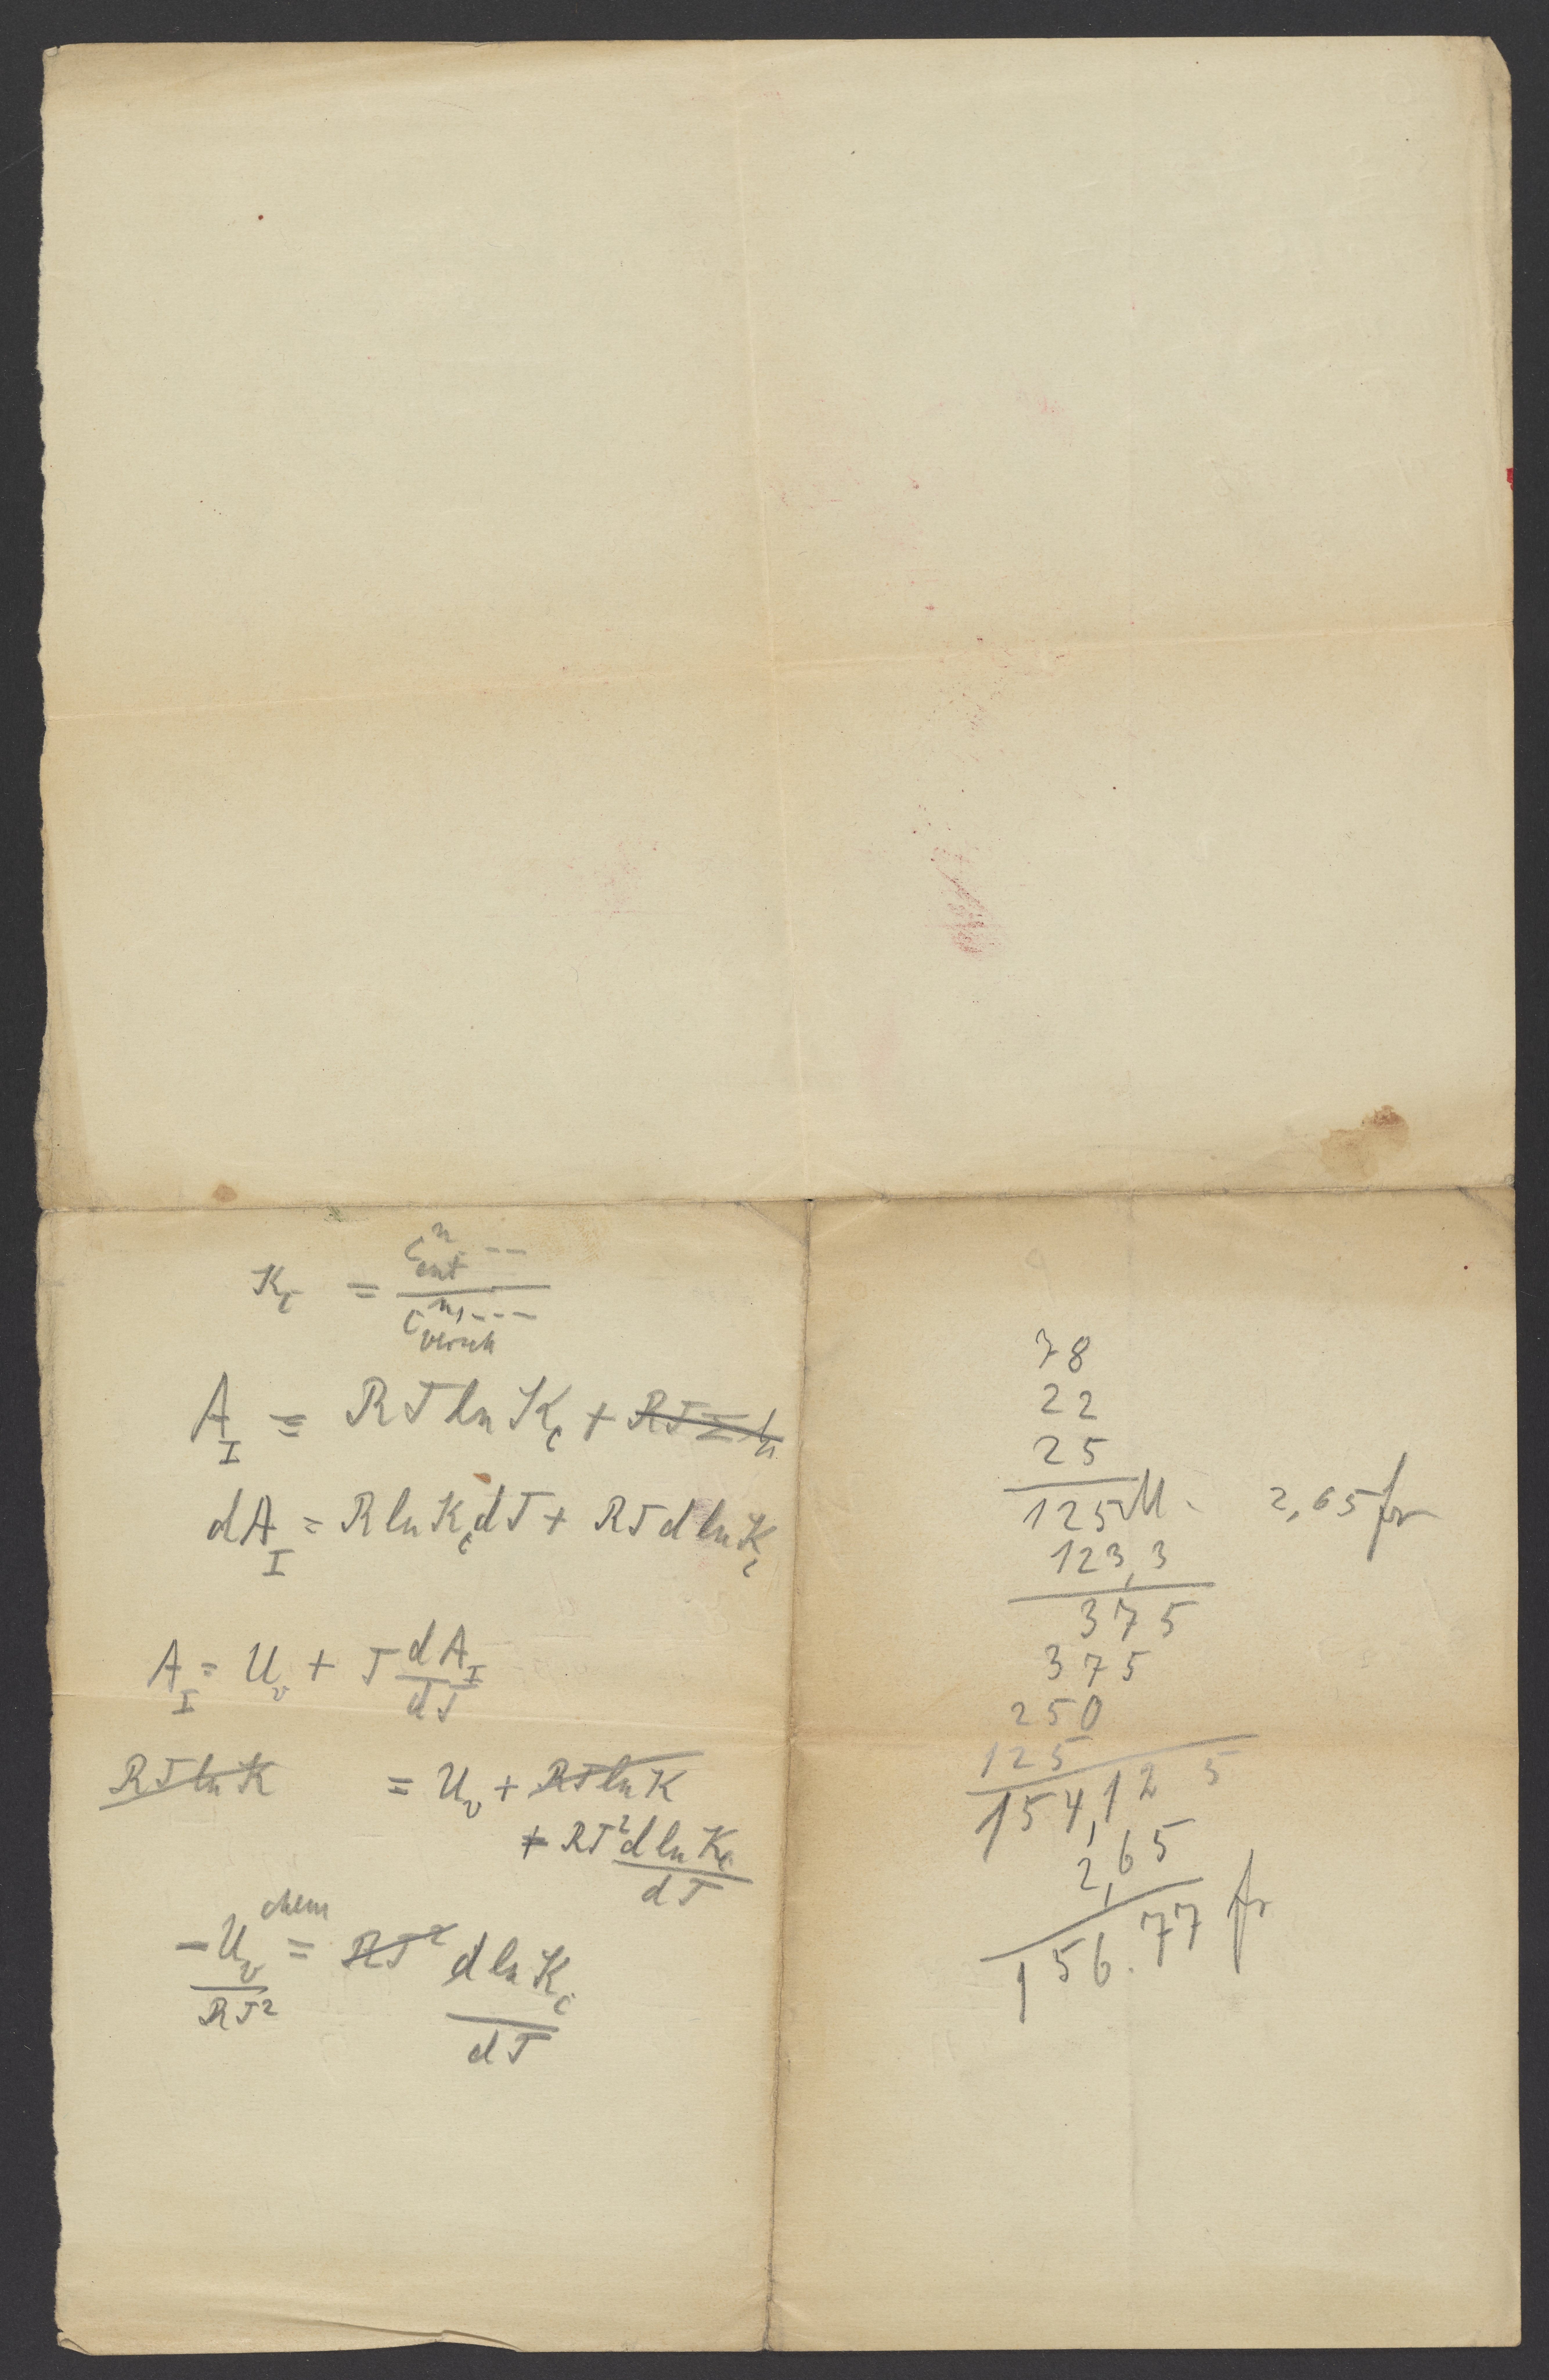 K_c = c^n_ent --- / c^n,---_versch
A_I = RT ln K_c + RT Σ n
dA_I = R ln K_c dT + RT d ln K_c
A_I = U_v + T dA_I / dT
RT ln K = U_v + RT ln K
+ RT² d ln K_c / dT
- U_v chem / RT² = RT² d ln K_c / dT
78
22
25
125 M. 2,65 fr
123,3
375
375
250
125
154,12 5
2,65
156.77 fr